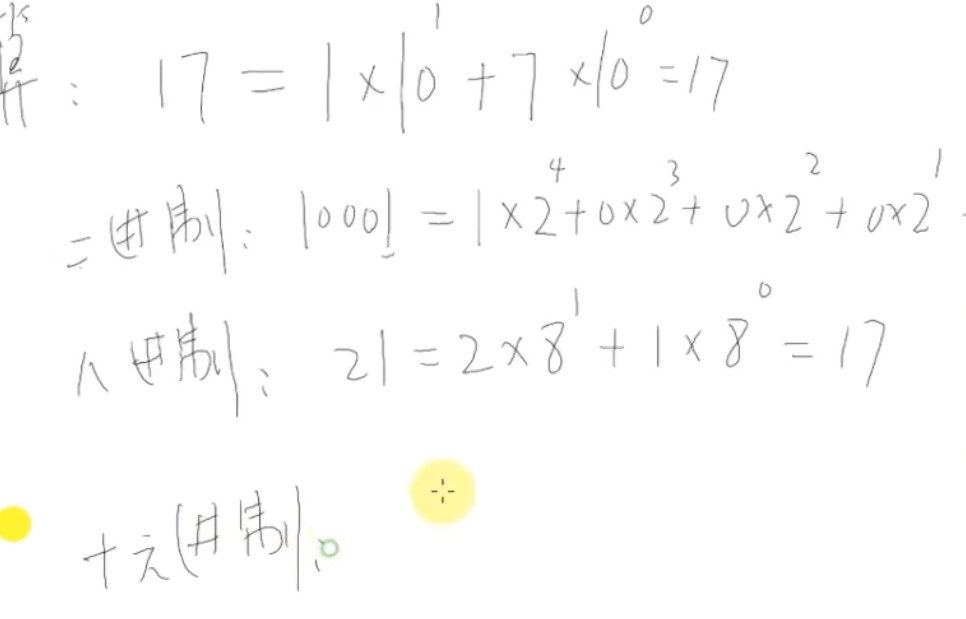 算: 17 = 1×10¹ + 7×10⁰ = 17
二进制: 10001 = 1×2⁴ + 0×2³ + 0×2² + 0×2¹
八进制: 21 = 2×8¹ + 1×8⁰ = 17
十六进制: